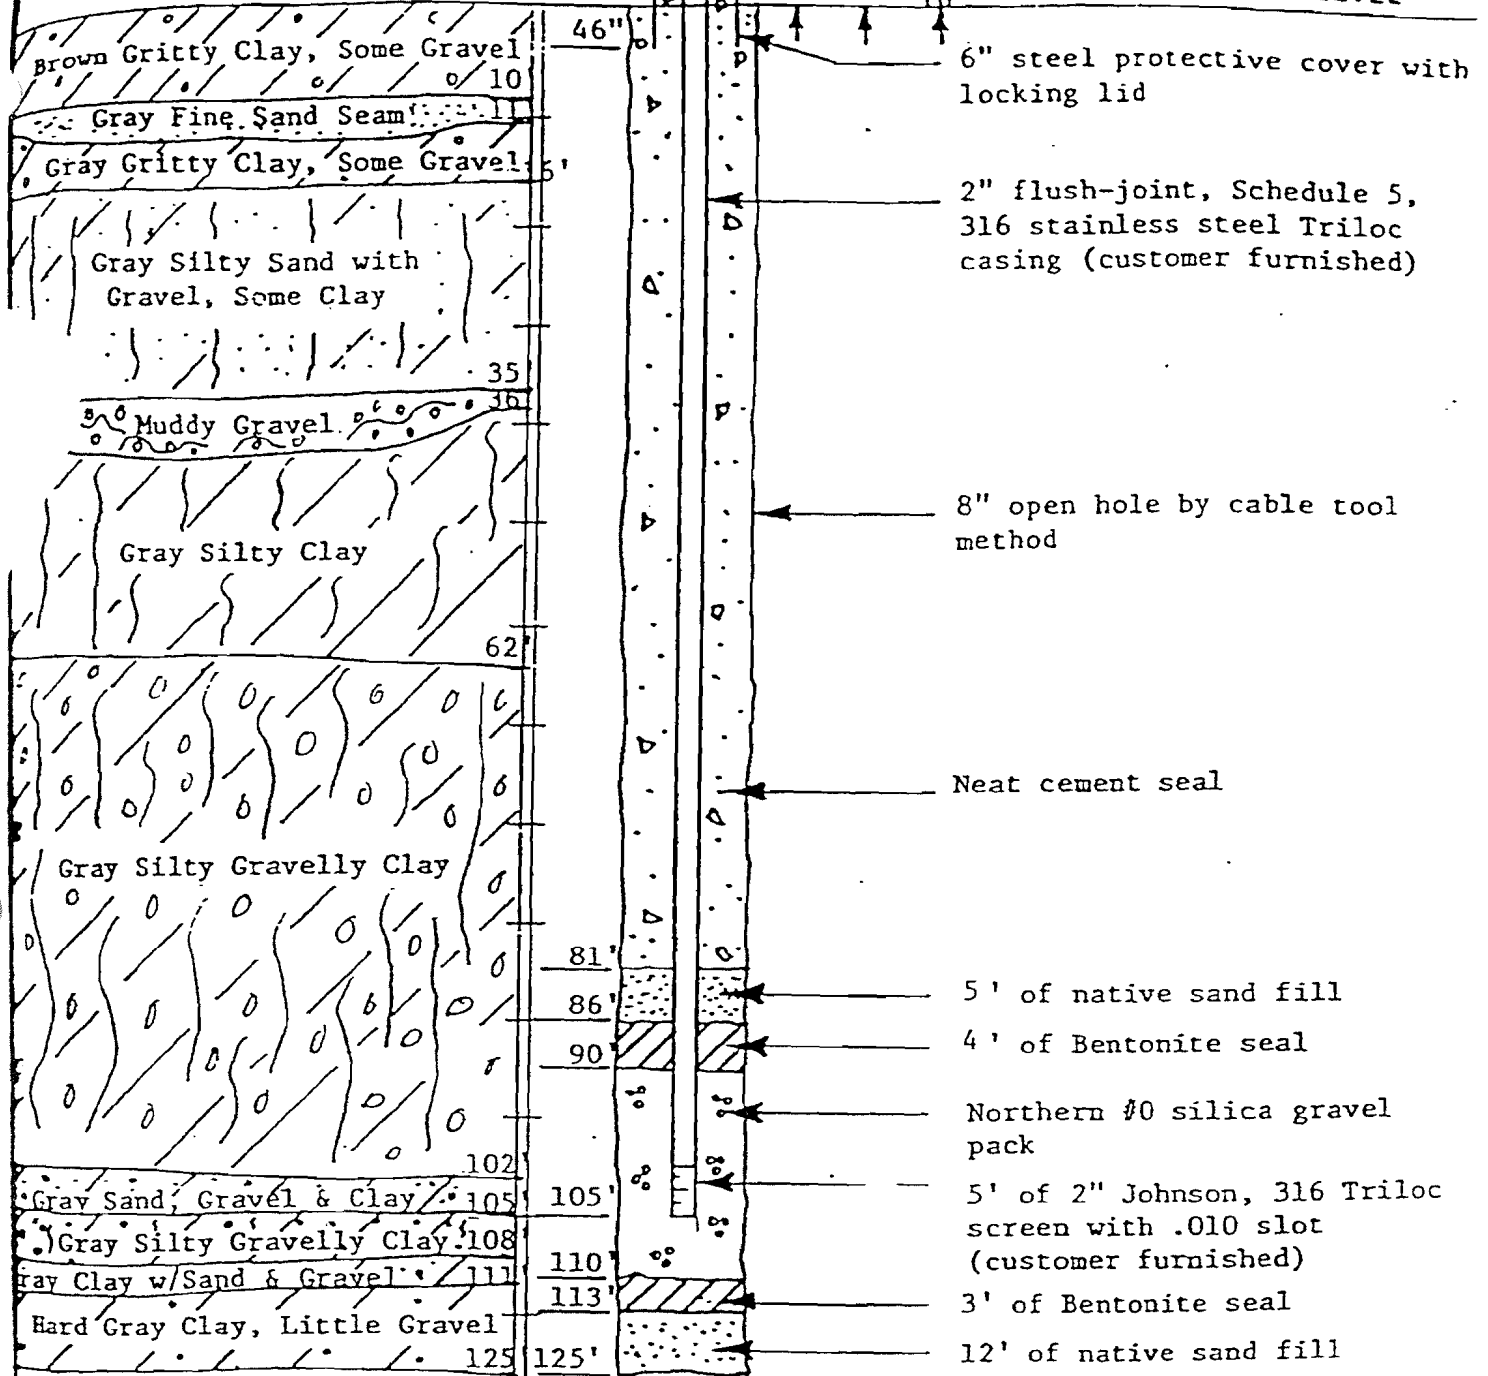 46"
Brown Gritty Clay, Some Gravel
10
Gray Fine Sand Seam
11
Gray Gritty Clay, Some Gravel
5'
Gray Silty Sand with
Gravel, Some Clay
35
36
Muddy Gravel
Gray Silty Clay
62'
Gray Silty Gravelly Clay
102'
Gray Sand, Gravel & Clay
105'
Gray Silty Gravelly Clay
108
ray Clay w/Sand & Gravel
111
Hard Gray Clay, Little Gravel
125'
81'
86'
90'
105'
110'
113'
125'
6" steel protective cover with
locking lid
2" flush-joint, Schedule 5,
316 stainless steel Triloc
casing (customer furnished)
8" open hole by cable tool
method
Neat cement seal
5' of native sand fill
4' of Bentonite seal
Northern #0 silica gravel
pack
5' of 2" Johnson, 316 Triloc
screen with .010 slot
(customer furnished)
3' of Bentonite seal
12' of native sand fill